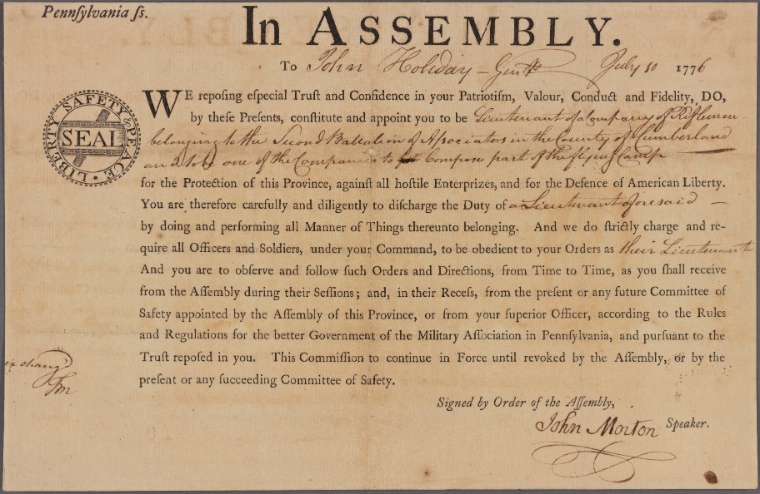 Pennsylvania ſs.
In ASSEMBLY.
To John Holiday – Gent July 10 1776
LIBERTY SAFETY & PEACE
SEAL
WE repoſing eſpecial Truſt and Confidence in your Patriotiſm, Valour, Conduct and Fidelity, DO,
by theſe Preſents, conſtitute and appoint you to be Lieutenant of a Company of Riflemen
belonging to the Second Battalion of Aſsociators in the County of Cumberland
one of the Companies to Compose part of the flying Camp
for the Protection of this Province, againſt all hoſtile Enterprizes, and for the Defence of American Liberty.
You are therefore carefully and diligently to diſcharge the Duty of a Lieutenant aforesaid –
by doing and performing all Manner of Things thereunto belonging. And we do ſtrictly charge and re-
quire all Officers and Soldiers, under your Command, to be obedient to your Orders as their Lieutenant
And you are to obſerve and follow ſuch Orders and Directions, from Time to Time, as you ſhall receive
from the Aſſembly during their Seſſions; and, in their Receſs, from the preſent or any future Committee of
Safety appointed by the Aſſembly of this Province, or from your ſuperior Officer, according to the Rules
and Regulations for the better Government of the Military Aſſociation in Pennſylvania, and purſuant to the
Truſt repoſed in you. This Commiſſion to continue in Force until revoked by the Aſſembly, or by the
preſent or any ſucceeding Committee of Safety.
Signed by Order of the Aſſembly,
John Morton Speaker.